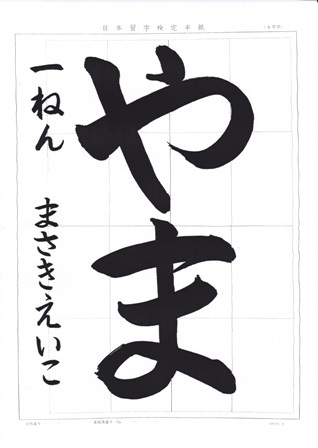 日本習字検定半紙
やま
一ねん まさきえいこ